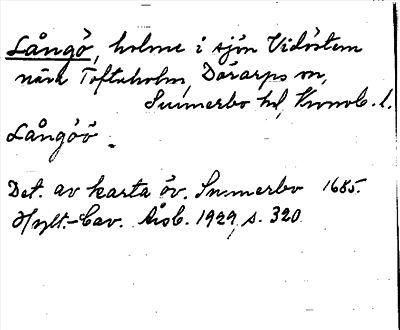 Långö, holme i sjön Vidöstern
nära Toftaholm, Dörarps sn,
Sunnerbo hd, Kronob. l.
Långöö
Det. av karta öv. Sunnerbo 1685.
Hylt.-Cav. Årsb. 1929, s. 320